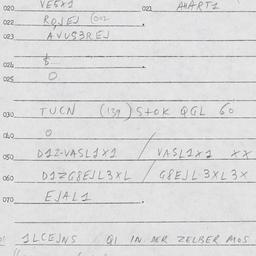 020 VESX1 021 AHART1
022 ROJEJ (012
023 AVUS3REJ
024 $
025 0
030 TUCN (139) STOK QGL 60
040 0
050 D12-VASL1X1 / VASL1X1 XX
060 D12G8EJL3XL / G8EJL3XL3X
070 EJAL1
1LCEJNS QI IN DER ZELBER MOS